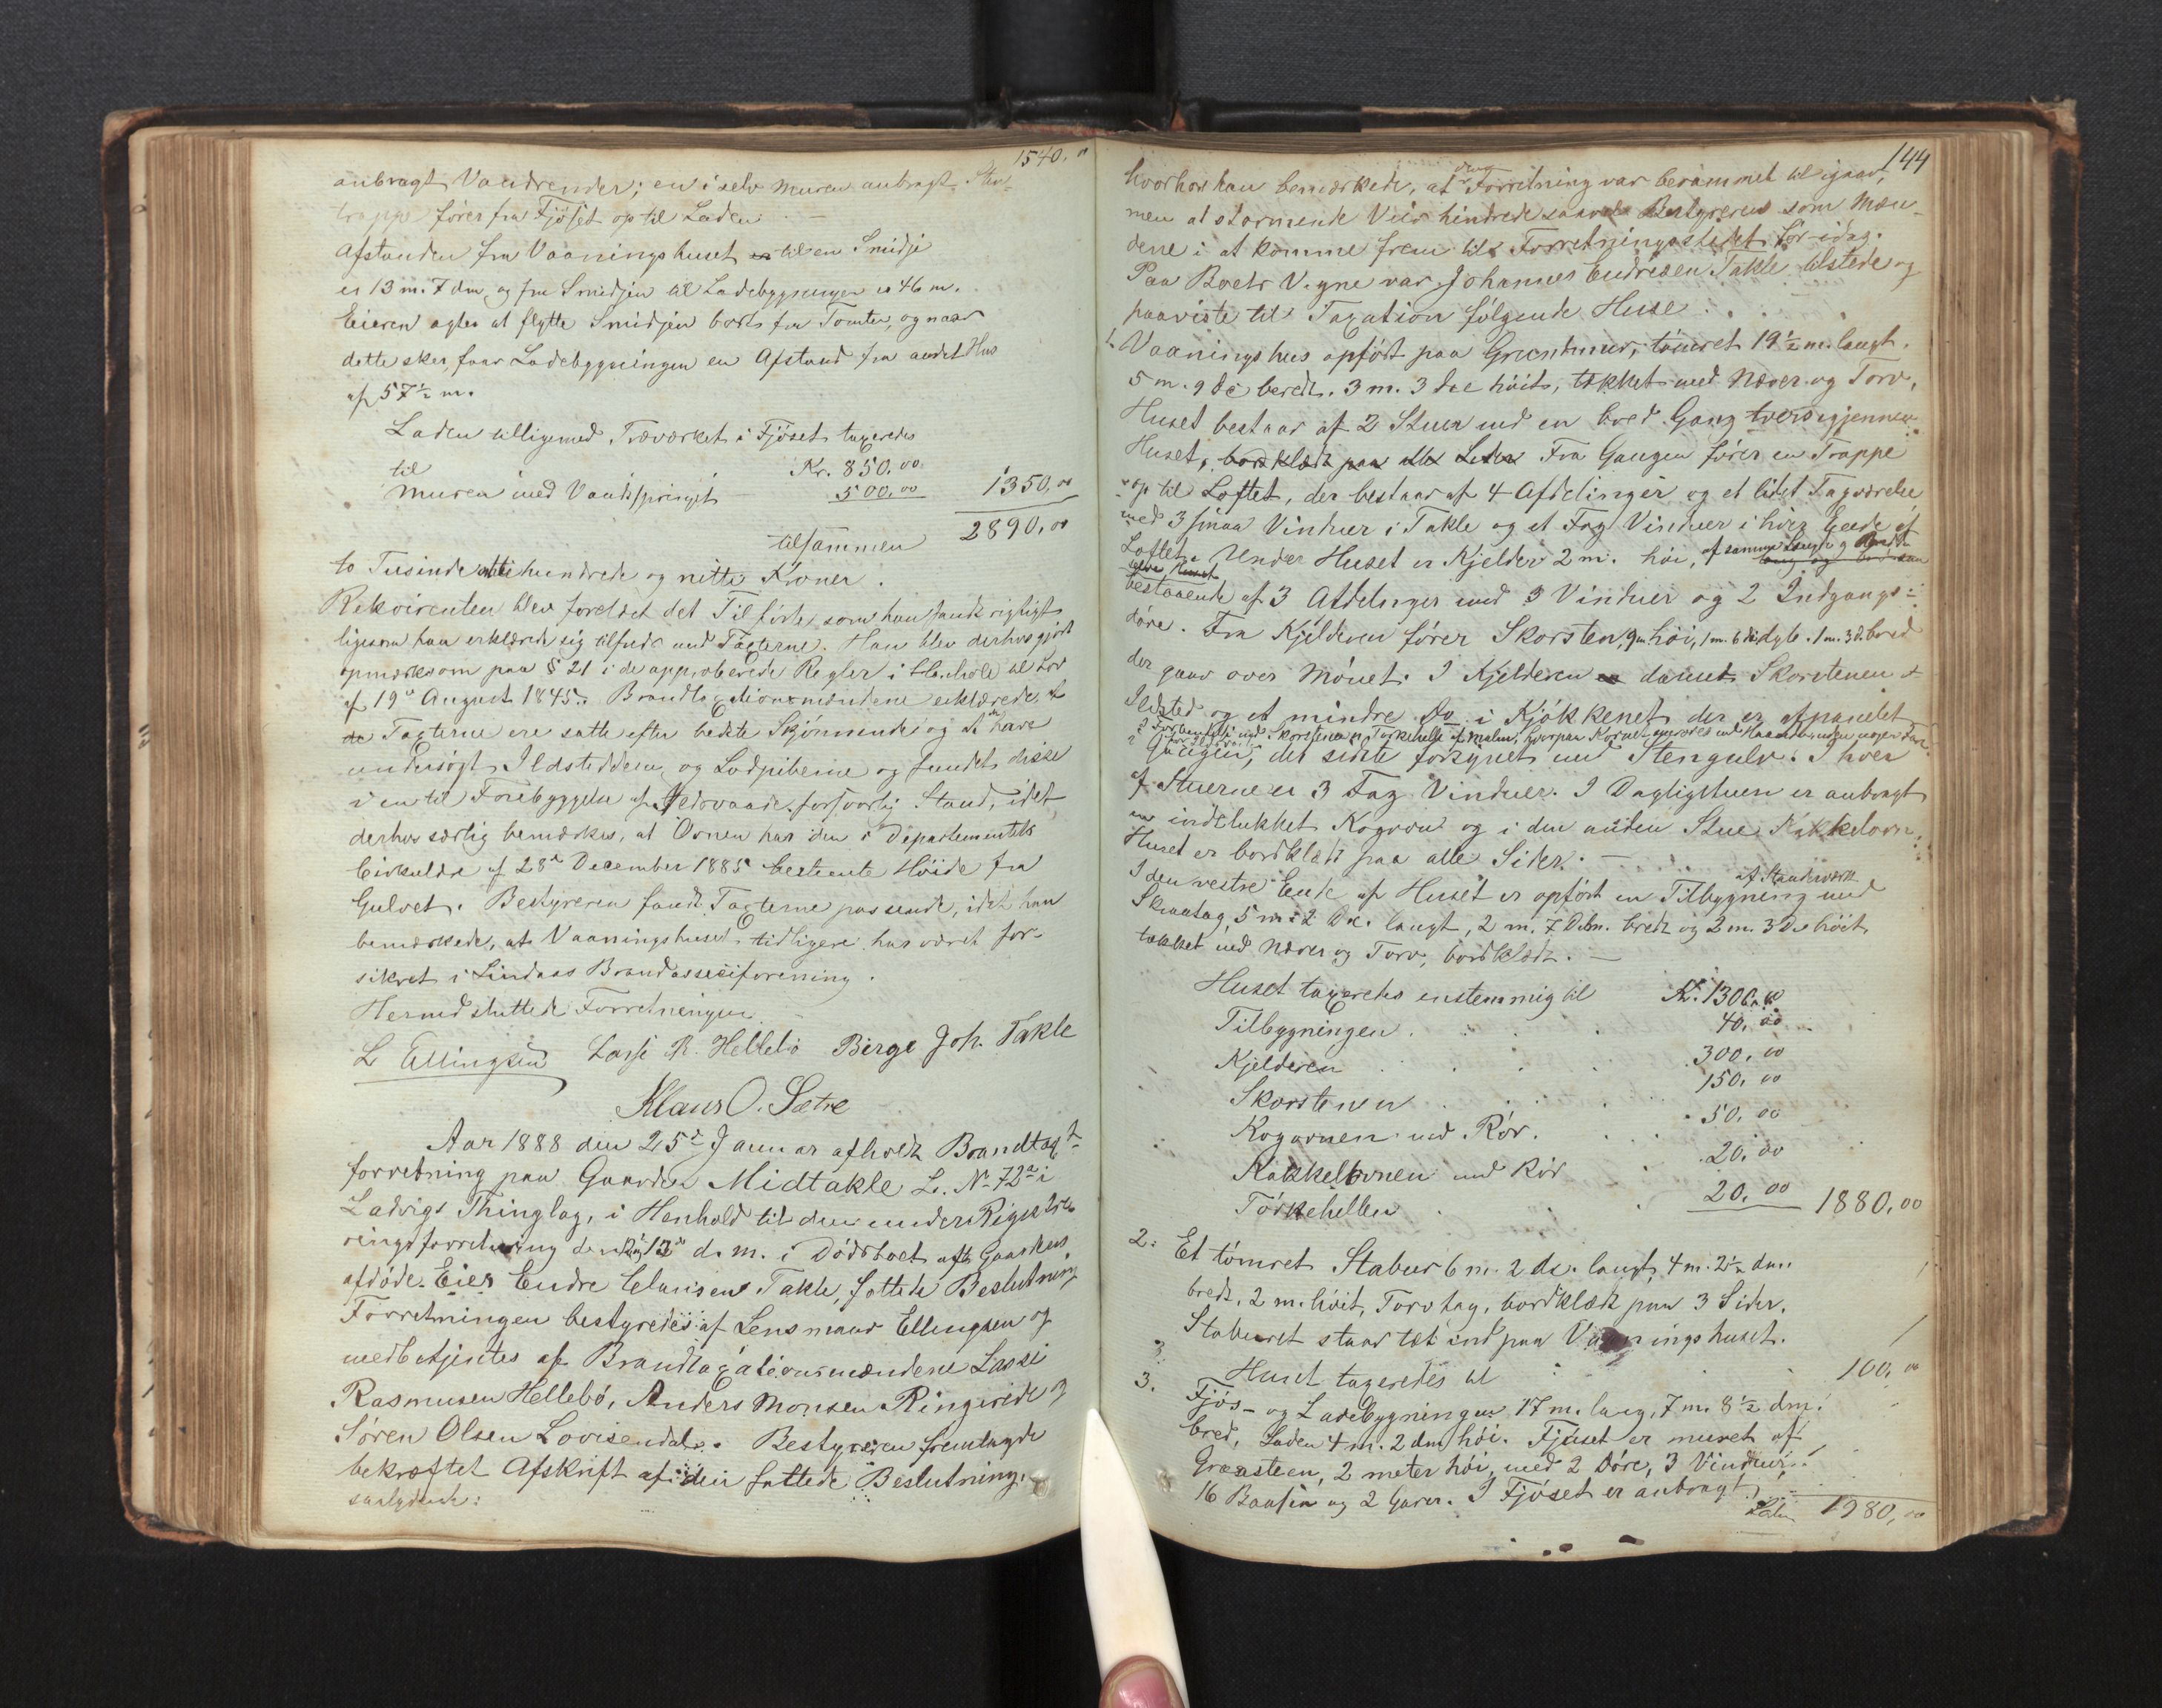 1540,00
anbragt Vandrender; en i selv Muren anbragt Sten-
trappe fører fra Fjøset op til Laden. —
Afstanden fra Vaaningshuset til en Smidje
er 13 m. 7 dm, og fra Smidjen til Ladebygningen er 46 m.
Eieren agter at flytte Smidjen bort fra Tomten, og naar
dette sker, faar Ladebygningen en Afstand fra andet Hus
af 57½ m.
Laden tilligemed Træværket i Fjøset taxeredes
til Kr. 850,00
Muren med Vandspringet 500,00 1350,00
tilsammen 2890,00
to Tusinde otte hundrede og nitti Kroner.
Rekvirenten blev forelæst det Tilførte, som han fandt rigtigt
ligesom han erklærede sig tilfreds med Taxterne. Han blev derhos gjort
opmærksom paa § 21 i de approberede Regler i Henhold til Lov
af 19de August 1845. Brandtaxationsmændene erklærede, at
Taxterne ere satte efter bedste Skjønnende og at de have
undersøgt Ildstederne og Lodpiberne og fundet disse
i en til Forebyggelse af Ildsvaade forsvarlig Stand, idet
derhos særlig bemærkes, at Ovnen har den i Departementets
Cirkulære af 28de December 1885 bestemte Høide fra
Gulvet. Bestyreren fandt Taxterne passende, idet han
bemærkede, at Vaaningshuset tidligere har været for-
sikret i Lindaas Brandassuciforening.
Hermed sluttede Forretningen.
L Ellingsen Lasse R. Hellebø Birge Joh. Takle
Klaus O. Sætre
Aar 1888 den 25de Januar afholdt Brandtaxt-
forretning paa Gaarden Midtakle L. No 72a i
Ladvigs Thinglag, i Henhold til den under Registre-
ringsforretning den 12te d. m. i Dødsboet efter Gaardens
afdøde Eier Endre Clausen Takle, fattede Beslutning
Forretningen bestyredes af Lensmand Ellingsen og
medbetjentes af Brandtaxationsmændene Lasse
Rasmusen Hellebø, Anders Monsen Ringereide og
Søren Olsen Lovisendal. Bestyreren fremlagde
bekræftet Afskrift af den fattede Beslutning,
saalydende:
144
hvorhos han bemærkede, at Forretning var berammet til igaar,
men at stormende Veir hindrede saavel Bestyreren som Mæn-
dene i at komme frem til Forretningsstedet før idag.
Paa Boets Vegne var Johannes Endresen Takle tilstede og
paaviste til Taxation følgende Huse:
1. Vaaningshus opført paa Grundmur, tømret 19½ m. langt,
5 m. 9 dc bredt, 3 m. 3 dc høit, tækket med Næver og Torv,
Huset bestaar af 2 Stuer med en bred Gang tversigjennem
Huset, bordklædt paa alle Sider Fra Gangen fører en Trappe
op til Loftet, der bestaar af 4 Afdelinger og et lidet Tagværelse
med 3 smaa Vinduer i Takle og et Fag Vinduer i hver Ende af
Loftet. Under Huset er Kjelder 2 m. høi, af samme Længde og Bredde
bestaaende af 3 Afdelinger med 3 Vinduer og 2 Indgangs-
døre. Fra Kjelderen fører Skorsten, 9 m høi, 1 m. 6 dc dyb. 1 m. 3 d. bred
der gaar over Mønet. I Kjelderen danner Skorstenen et
Ildsted og et mindre Do i Kjøkkenet der er afpanelet
Gangen, det sidste forsynet med Stengulv. I hver
af Stuerne er 3 Fag Vinduer. I Dagligstuen er anbragt
en indelukket Kogovn og i den anden Stue Kakkelovn.
Huset er bordklædt paa alle Sider. —
I den vestre Ende af Huset er opført en Tilbygning af Standværk med
Skraatag, 5 m. 2 Dc. langt, 2 m. 7 Dcm. bredt og 2 m. 3 Dc høit
tækket med Næver og Torv, bordklædt. —
Huset taxeredes enstemmig til Kr. 1300,00
Tilbygningen 40,00
Kjelderen 300,00
Skorstenen 150,00
Kogovnen med Rør. 50,00
Kakkelovnen med Rør 20,00
Tørkehellen 20,00 1880,00
2. Et tømret Stabur 6 m. 2 dc. langt, 4 m. 2½ dm.
bredt, 2 m. høit, Torvtag, bordklædt paa 3 Sider.
Staburet staar tæt ind paa Vaaningshuset.
Huset taxeredes til 100,00
3. Fjøs- og Ladebygningen 17 m. lang, 7 m. 8½ dm.
bred, Laden 4 m. 2 dm høi. Fjøset er muret af
Graasteen, 2 meter høi, med 2 Døre, 3 Vinduer,
16 Baase og 2 Garer. I Fjøset er anbragt
Latus 1980,00